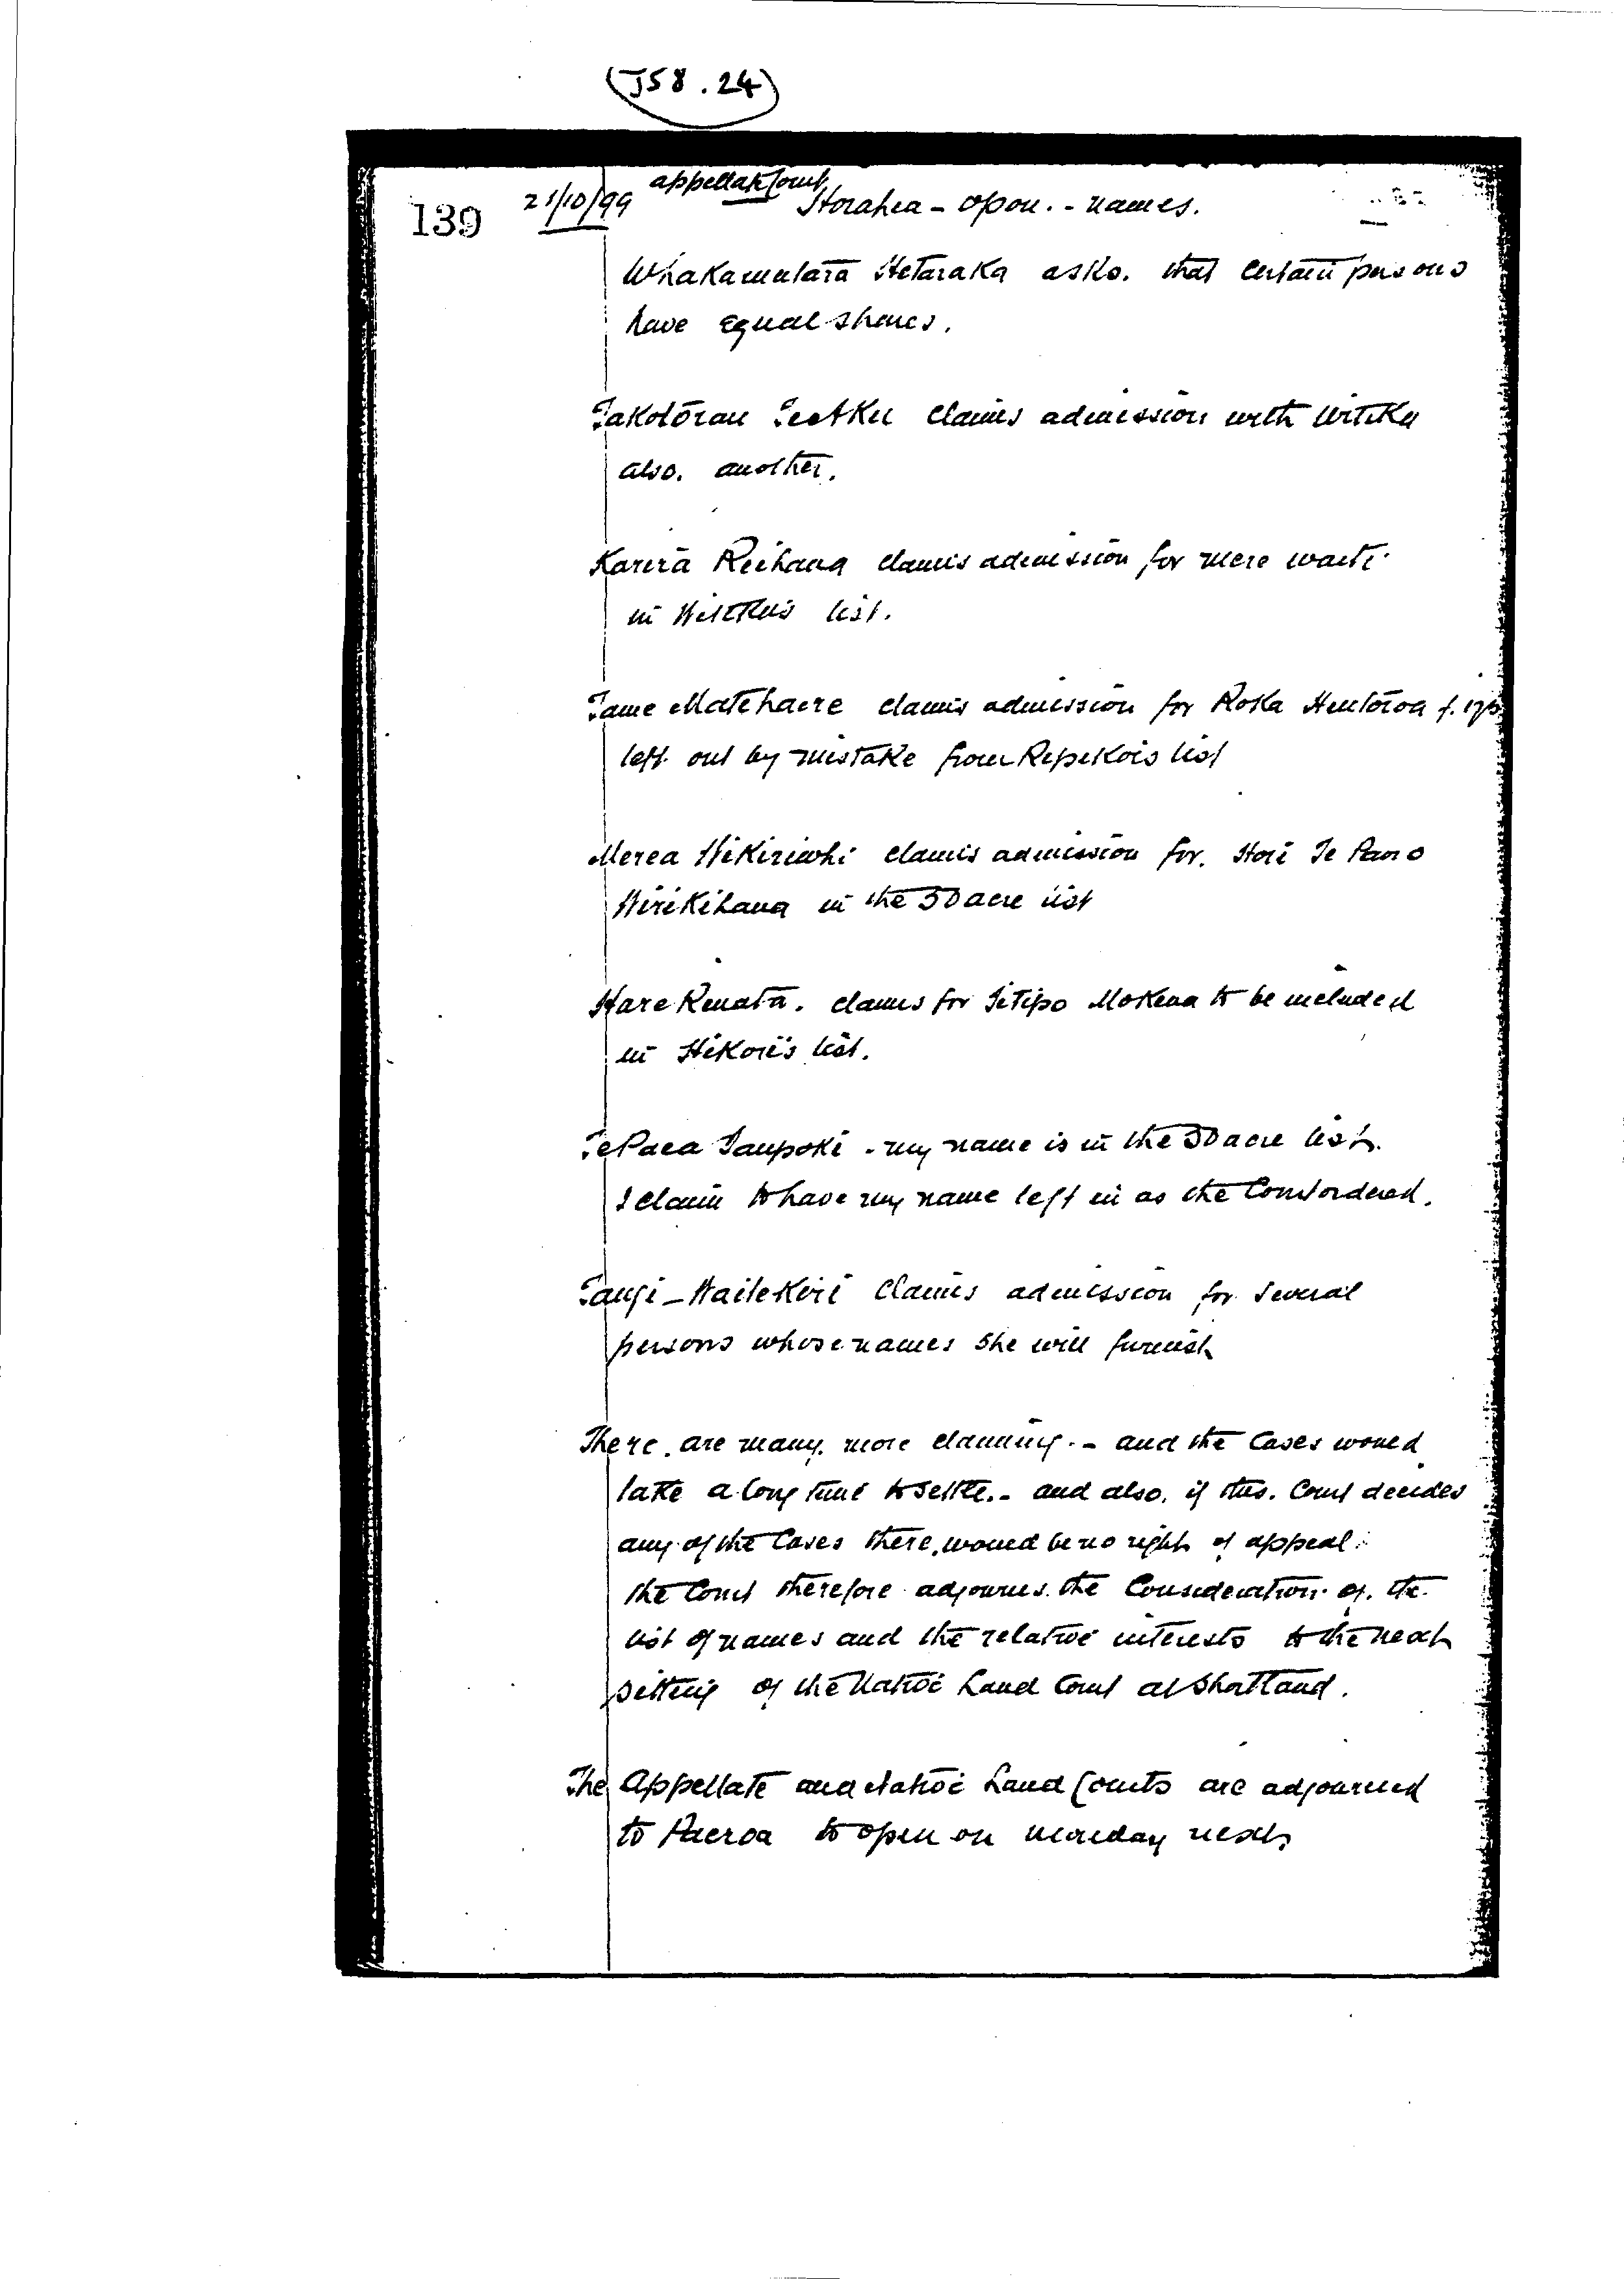 (J58.24)
139 21/10/99 Appellate Court
Horahia - Opou. - names.
Whakamutara Hetaraka asks. that certain persons
have equal shares.
claims admission with Witika
also. another.
Karira Reihana claims admission for mere waiti
in list.
Tame Matehaere claims admission for Roka
left out by mistake from Repekois list
Merea Wikiriwhi claims admission for. Hori Te
Wirikihana in the 50 acre list
Hare Renata. claims for Te Tipo Mokena to be included
in Hikori's list.
Te Paea Taupoki - my name is in the 50 acre list.
I claim to have my name left in as the Court ordered.
Tangi - claims admission for several
persons whose names she will furnish
There. are many. more claiming. - and the Cases would
take a long time to settle. - and also. if this. Court decides
any of the Cases there would be no right of appeal.
the Court therefore adjourns. the Consideration of. the
list of names and the relative interests to the next
sitting of the Native Land Court at Shortland.
The Appellate and Native Land Courts are adjourned
to Paeroa to open on monday next